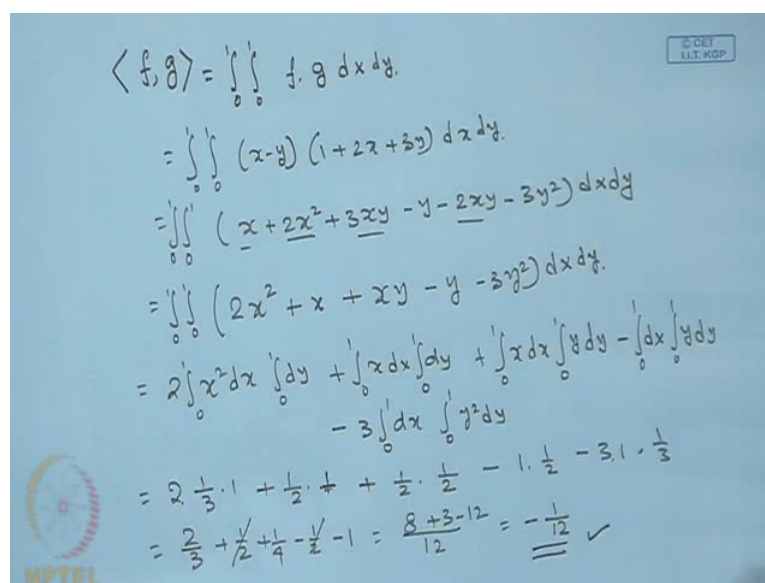 © CET
I.I.T. KGP
⟨f, g⟩ = ∫₀¹ ∫₀¹ f. g dx dy.
= ∫₀¹ ∫₀¹ (x-y) (1 + 2x + 3y) dx dy.
= ∫₀¹ ∫₀¹ ( x + 2x² + 3xy - y - 2xy - 3y²) dx dy
= ∫₀¹ ∫₀¹ ( 2x² + x + xy - y - 3y²) dx dy.
= 2 ∫₀¹ x² dx ∫₀¹ dy + ∫₀¹ x dx ∫₀¹ dy + ∫₀¹ x dx ∫₀¹ y dy - ∫₀¹ dx ∫₀¹ y dy
- 3 ∫₀¹ dx ∫₀¹ y² dy
= 2. 1/3 · 1 + 1/2 · 1 + 1/2 · 1/2 - 1. 1/2 - 3.1 · 1/3
= 2/3 + 1/2 + 1/4 - 1/2 - 1 = (8 + 3 - 12)/12 = - 1/12 ✓
NPTEL